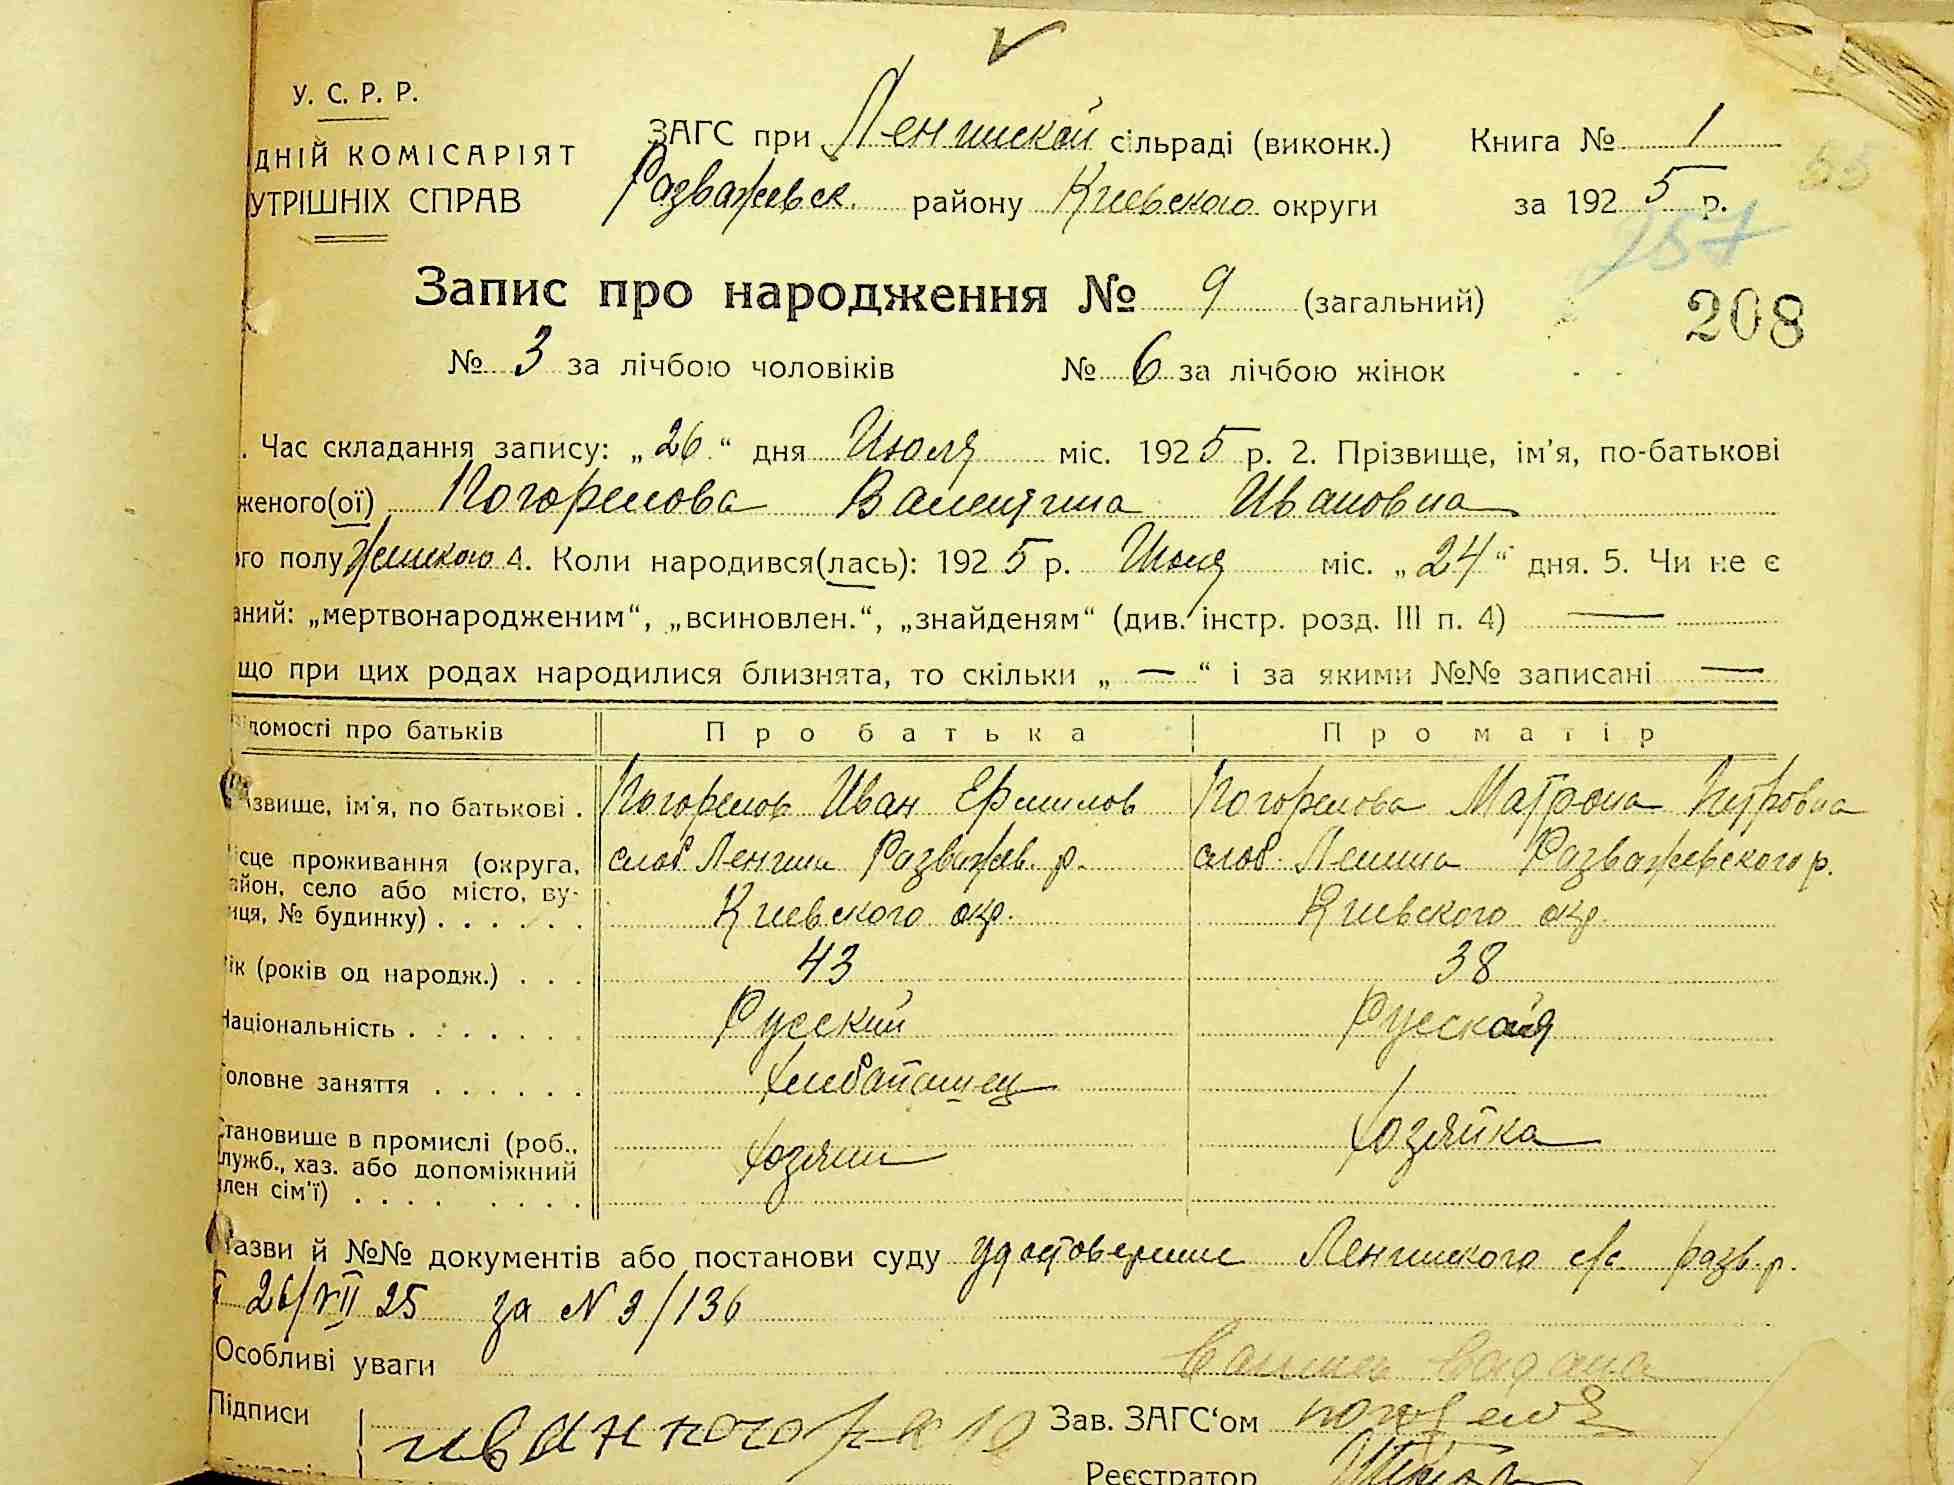 У. С. Р. Р.
ДНІЙ КОМІСАРІЯТ
УТРІШНІХ СПРАВ
ЗАГС при Ленинской сільраді (виконк.) Книга № 1
Розважевск. району Киевского округи за 1925 р.
55
257
Запис про народження № 9 (загальний)
208
№ 3 за лічбою чоловіків № 6 за лічбою жінок
. Час складання запису: „26“ дня Июля міс. 1925 р. 2. Прізвище, ім'я, по-батькові
женого(ої) Погорелова Валентина Ивановна
ого полу женского 4. Коли народився(лась): 1925 р. Июля міс. „24“ дня. 5. Чи не є
аний: „мертвонародженим“, „всиновлен.“, „знайденям“ (див. інстр. розд. III п. 4) —
що при цих родах народилися близнята, то скільки „ — “ і за якими №№ записані —
ідомості про батьків Про батька Про матір
ізвище, ім'я, по батькові . Погорелов Иван Ермилов Погорелова Матрона Петровна
ісце проживання (округа, слоб Ленина Розважев. р. слоб. Ленина Розважевского р.
айон, село або місто, ву-
иця, № будинку) . . . . . . Киевского окр. Киевского окр.
ік (років од народж.) . . . 43 38
Національність . . . . . . . Русский Русская
оловне заняття . . . . . . хлебапашец
тановище в промислі (роб.,
лужб., хаз. або допоміжний хозяин хозяйка
лен сім'ї) . . . . . . . .
азви й №№ документів або постанови суду удостоверение Ленинского с/с. разв. р.
26/VII 25 за N 3/136
Особливі уваги
Підписи Зав. ЗАГС'ом
Реєстратор